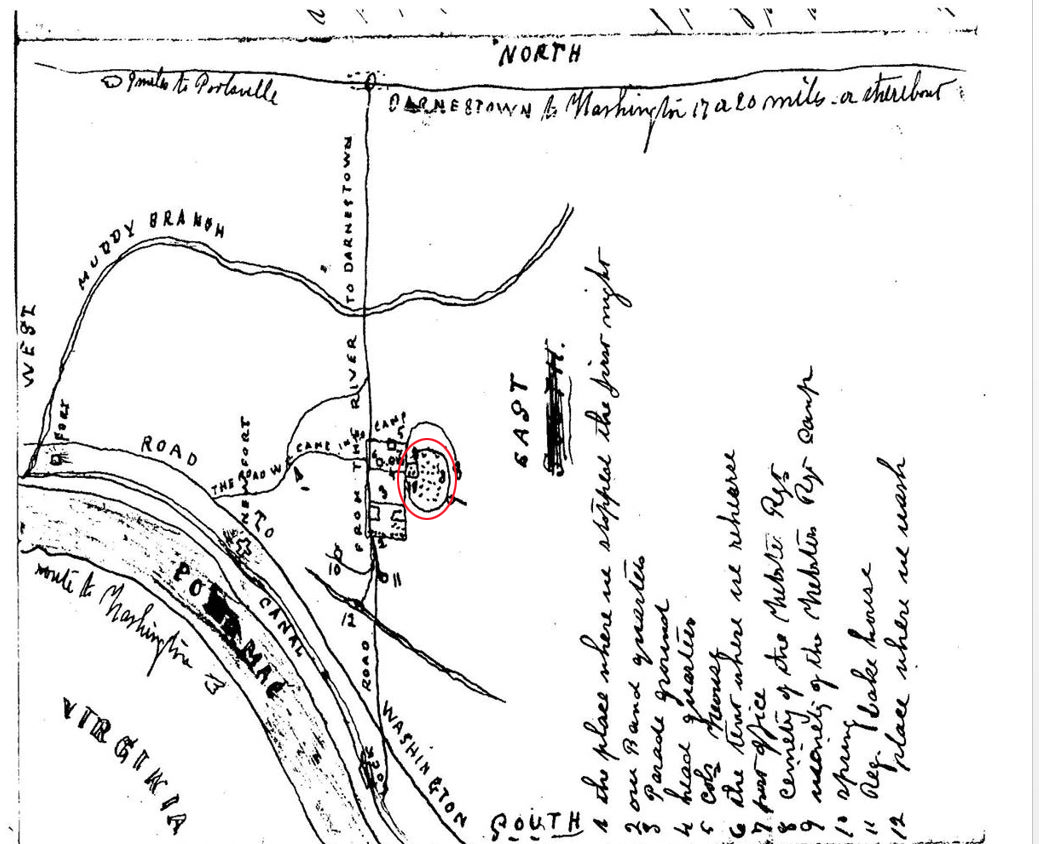 NORTH
9 miles to Poolsville
DARNESTOWN to Washington 17 or 20 miles or therebout
MUDDY BRANCH
WEST
TO DARNESTOWN
ROAD FROM THE RIVER
FORT
ROAD TO WASHINGTON
NEW FORT
THE ROAD W CAME IN CAMP
EAST
CANAL
POTOMAC
route to Washington
VIRGINIA
LOCK
SOUTH
5
3
8
10
11
12
1 the place where we stopped the first night
2 our Band quarters
3 Parade ground
4 head quarters
5 cols house
6 the tent where we rehearse
7 post office
8 cemetry of the Webster Regt
9 of the Websters Regt camp
10 spring
11 Reg bake house
12 place where we wash